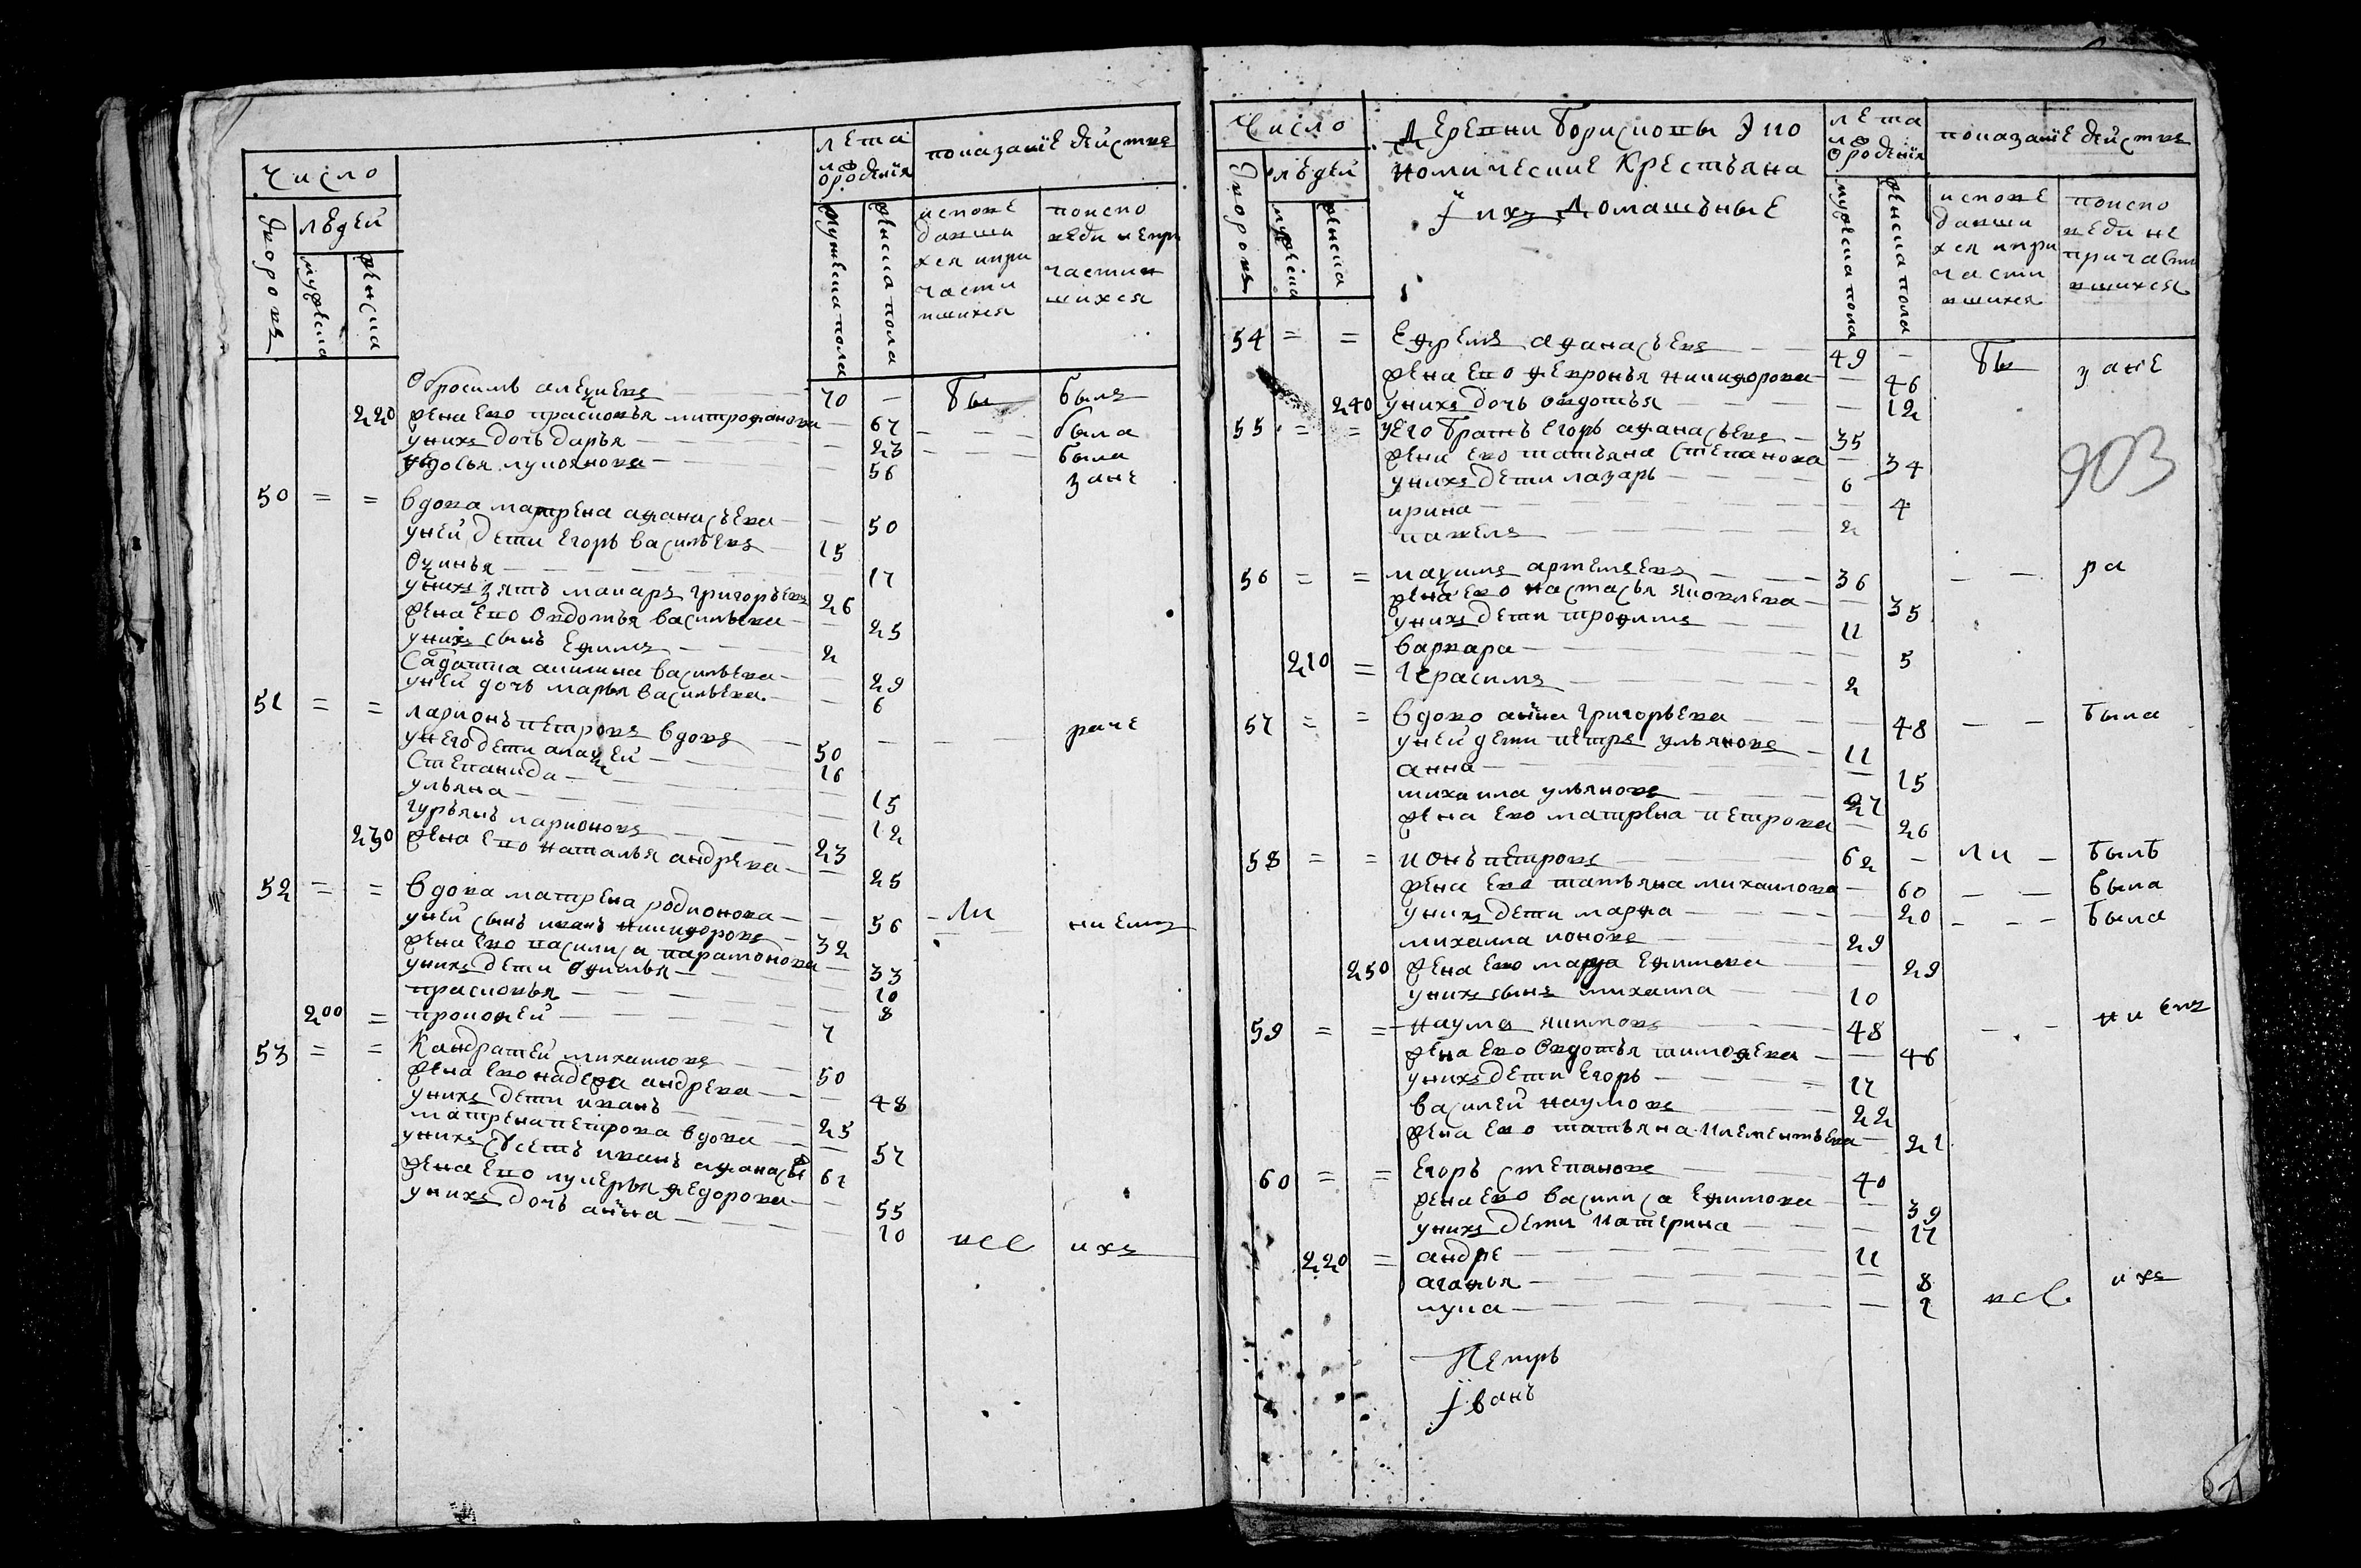 Число
лѣта ѿ рождения
показание действа
дворовъ
людей
мужеска
женска
мужеска пола
женска пола
исповедавшихся и причастившихся
по исповеди не причастившихся
Обросимъ алеѯеевъ 70 — бы былъ
220 жена ево прасковья митрофанова — 67 — была
у нихъ дочь дарья — 23 — была
56 зане
50 = = вдова матрена афанасьева — 50
у ней дети егоръ васильевъ — 15
17
у нихъ зять макаръ григорьевъ 26
жена ево овдотья васильева — 25
у нихъ сынъ ефимъ 2
акилина васильева — 29
у ней дочь марья васильева — 6
51 = = ларионъ петровъ вдовъ 50 — — — раче
у него дети 16
степанида — 15
ульяна — 12
гурьянъ ларионовъ 23
230 жена ево наталья андреева — 25
52 = = вдова матрена родионова — 56 — ли ниемъ
у ней сынъ иванъ никифоровъ 32
жена ево василиса парамонова — 33
у нихъ дети офимья — 10
прасковья — 8
200 = прокофей 7
53 = = Кандратей михаиловъ 50
жена ево андреева — 48
у нихъ дети иванъ 25
матрена петрова вдова — 57
у нихъ иванъ афанасье 61
жена ево лукерья федорова — 55
у нихъ дочь анна — 10 все ихъ
Число
Деревни Борисовы Эко
номические Крестьяна
і ихъ Домашъные
лѣта ѿ рождения
показание действа
дворовъ
людей
мужеска
женска
мужеска пола
женска пола
исповедавшихся и причастившихся
по исповеди не причастившихся
54 = = Ефремъ афанасьевъ 49 — бы зане
жена ево февронья никифорова — 46
240 у нихъ дочь овдотья — 12
55 = = у его братъ егоръ афанасьевъ 35
903
жена ево татьяна степанова — 34
у нихъ дети лазарь 6
ирина — 4
павелъ 2
56 = = маѯимъ артемьевъ 36 — — ра
жена ево настасья яковлева — 35
у нихъ дети трофимъ 11
варвара — 5
210 = герасимъ 2
57 = = вдово анна григорьева — 48 — — была
у ней дети петръ ульяновъ 11
анна — 15
михаила ульяновъ 27
жена ево матрена петрова — 26
58 = = ионъ петровъ 62 — ли — былъ
жена ево татьяна михаилова — 60 — — была
у нихъ дети марфа — 20 — — была
михаила ионовъ 29
250 жена ево марфа ефимова — 29
у нихъ сынъ михаила 10
59 = = наумъ 48 — — ниемъ
жена ево овдотья тимофеева — 46
у нихъ дети егоръ 17
василей наумовъ 22
жена ево татьяна климентьева — 21
60 = = егоръ степановъ 40
жена ево василиса ефимова — 39
у нихъ дети катерина — 17
220 = андре 11
агафья — 8
лука — 2 все ихъ
Петръ
Іванъ